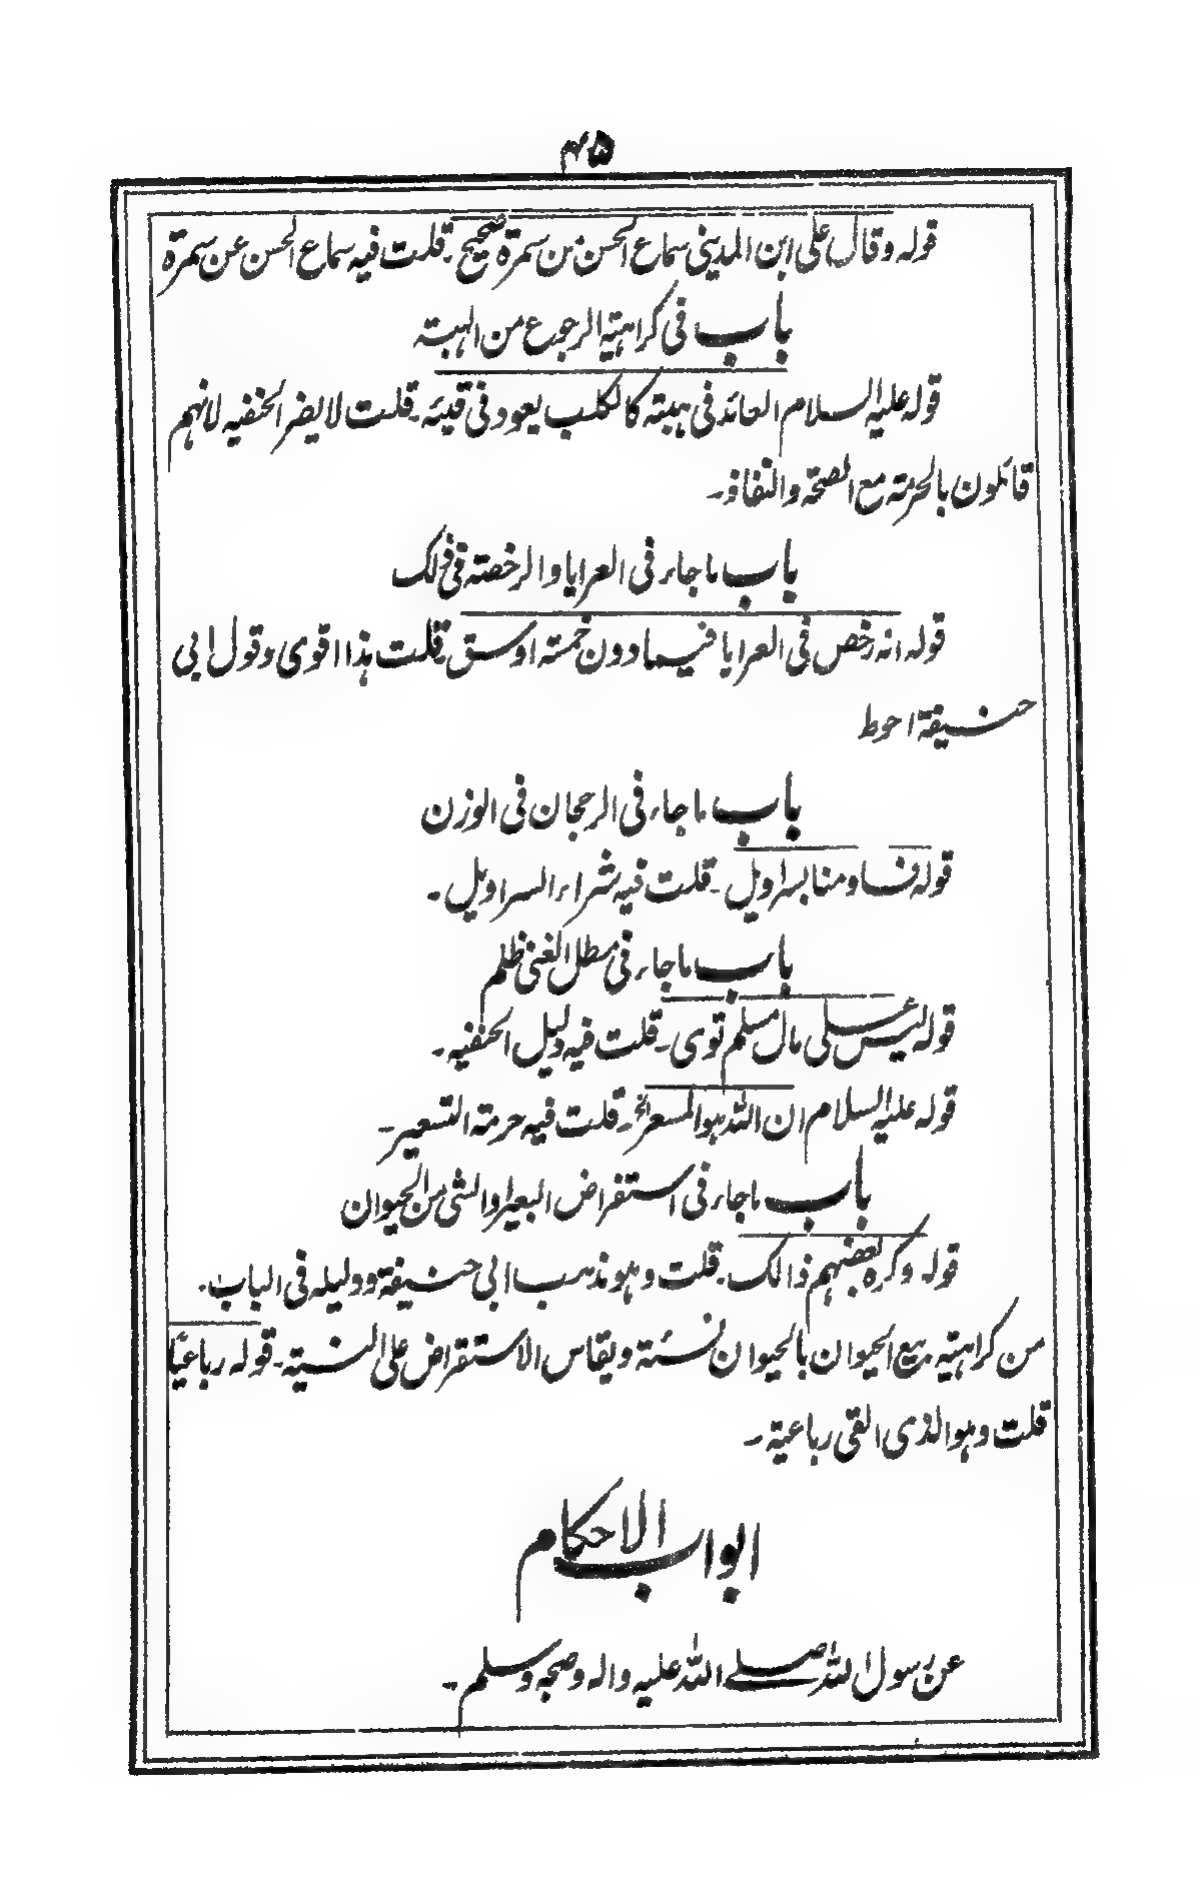 ۴۵
قوله وقال علی ابن المدینی سماع الحسن من سمرة صحیح۔ قلت فیه سماع الحسن عن سمرة
باب فی کراهیة الرجوع من الهبته
قوله علیه السلام العائد فی هبته کالکلب یعود فی قیئه۔ قلت لا یضر الحنفیه لانهم
قائلون بالحرمته مع الصحة والنفاذ۔
باب ماجاء فی العرایا والرخصته فی ذلک
قوله انه رخص فی العرایا فیما دون خمسته اوسق۔ قلت هذا اقوی وقول ابی
حنیفة احوط
باب ماجاء فی الرجحان فی الوزن
قوله فساومنا بسراویل۔ قلت فیه شراء السراویل۔
باب ماجاء فی مطل الغنی ظلم
قوله لیس علی مال مسلم توی۔ قلت فیه دلیل الحنفیه۔
قوله علیه السلام ان الله هو المسعر الخ۔ قلت فیه حرمة التسعیر۔
باب ماجاء فی استقراض البعیر اوالشی من الحیوان
قوله وکره بعضهم ذالک۔ قلت وهو مذهب ابی حنیفة ودلیله فی الباب۔
من کراهیته بیع الحیوان بالحیوان نسئة ویقاس الاستقراض علی النسیة۔ قوله رباعیًا
قلت وهو الذی القی رباعیة۔
ابواب الاحکام
عن رسول الله صلے الله علیه واله وصحبه وسلم۔